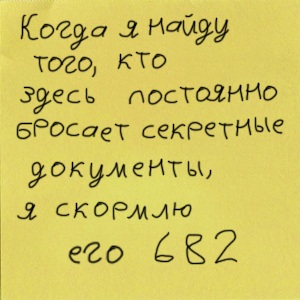 Когда я найду
того, кто
здесь постоянно
бросает секретные
документы,
я скормлю
его 682